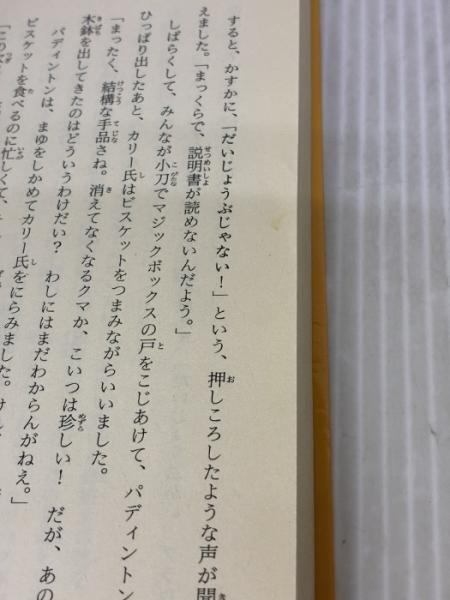 すると、かすかに、「だいじょうぶじゃない！」という、押しころしたような声が聞
えました。「まっくらで、説明書が読めないんだよう。」
しばらくして、みんなが小刀でマジックボックスの戸をこじあけて、パディントン
ひっぱり出したあと、カリー氏はビスケットをつまみながらいいました。
「まったく、結構な手品さね。消えてなくなるクマか、こいつは珍しい！　だが、あの
木鉢を出してきたのはどういうわけだい？　わしにはまだわからんがねえ。」
パディントンは、まゆをしかめてカリー氏をにらみました。けれ
ビスケットを食べるのに忙しくて、